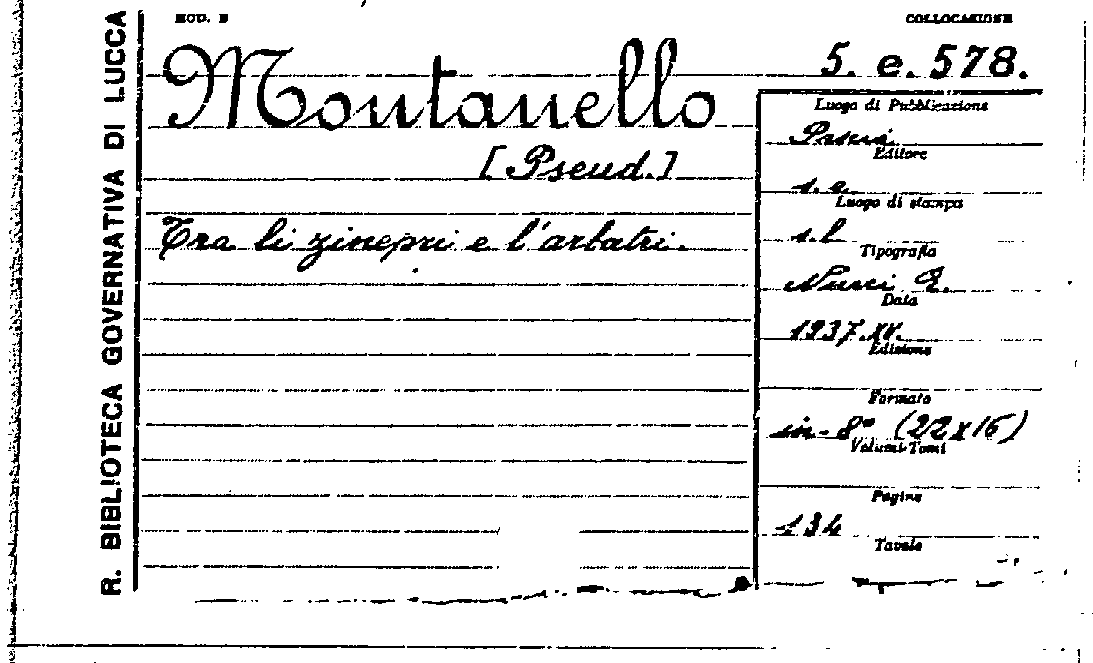 R. BIBLIOTECA GOVERNATIVA DI LUCCA
MOD. B
COLLOCAZIONE
5. e. 578.
Montanello
[Pseud.]
Tra li zinepri e l'arbatri.
Luogo di Pubblicazione
Pescia
Editore
s. e.
Luogo di stampa
s. l
Tipografia
Nucci E.
Data
1937. XV.
Edizione
Formato
in-8° (22x16)
Volumi-Tomi
Pagine
134
Tavole